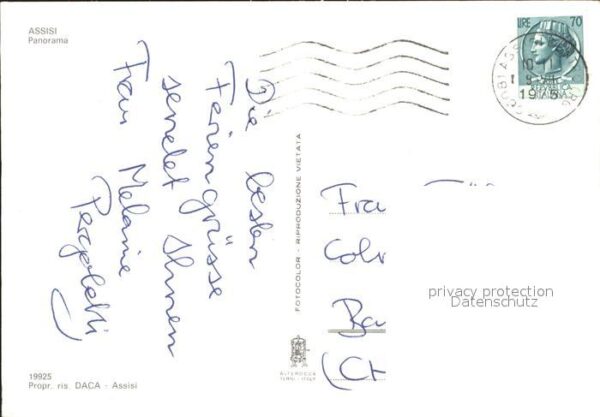 ASSISI
Panorama
LIRE 70
10
1975
ITALIA
Die besten
Feriengrüsse
sendet Ihnen
Frau Melanie
FOTOCOLOR - RIPRODUZIONE VIETATA
Fra
Colr
Ba
(CH
privacy protection
Datenschutz
ALTEROCCA
TERNI - ITALY
19925
Propr. ris DACA - Assisi